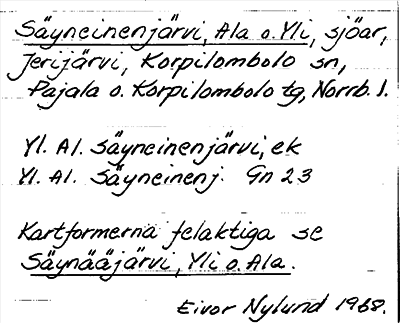 Säyneinenjärvi, Ala o. Yli, sjöar,
Jerijärvi, Korpilombolo sn,
Pajala o. Korpilombolo tg, Norrb. l.
Yl. Al. Säyneinenjärvi, ek
Yl. Al. Säyneinenj. Gn 23
Kartformerna felaktiga se
Säynääjärvi, Yli o. Ala.
Eivor Nylund 1968.